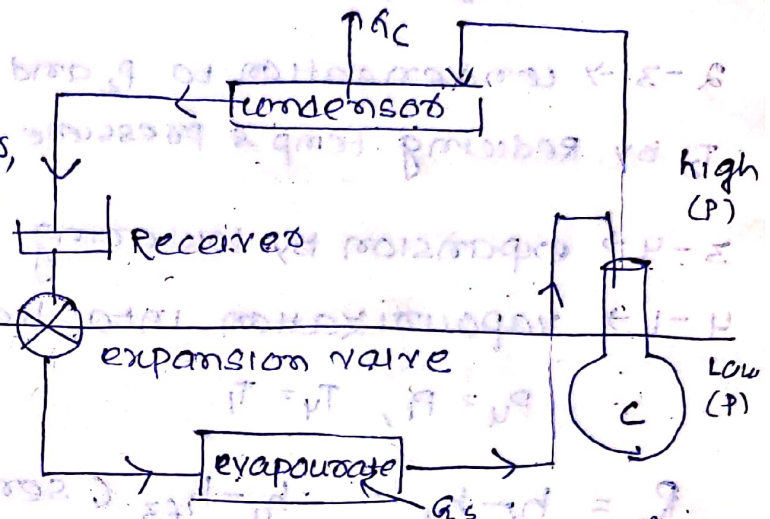 QC
condensor
s,
high
(P)
Receiver
expansion valve
Low
(P)
C
evapourate
Qs